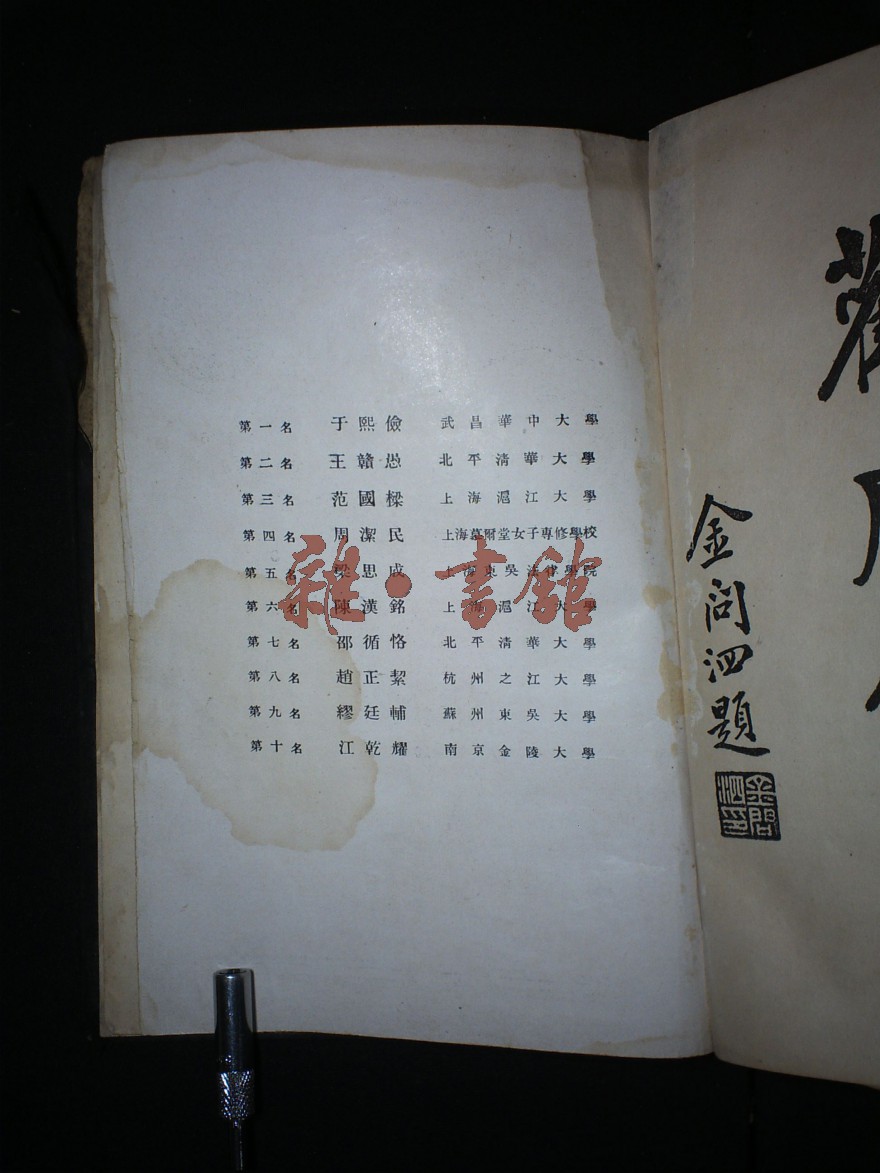 第一名 于熙儉 武昌華中大學
第二名 王贛愚 北平清華大學
第三名 范國樑 上海滬江大學
第四名 周潔民 上海慕爾堂女子專修學校
第五名 梁思成 上海東吳法律學院
第六名 陳漢銘 上海滬江大學
第七名 邵循恪 北平清華大學
第八名 趙正絜 杭州之江大學
第九名 繆廷輔 蘇州東吳大學
第十名 江乾耀 南京金陵大學
雜·書館
金問泗題
金問泗印